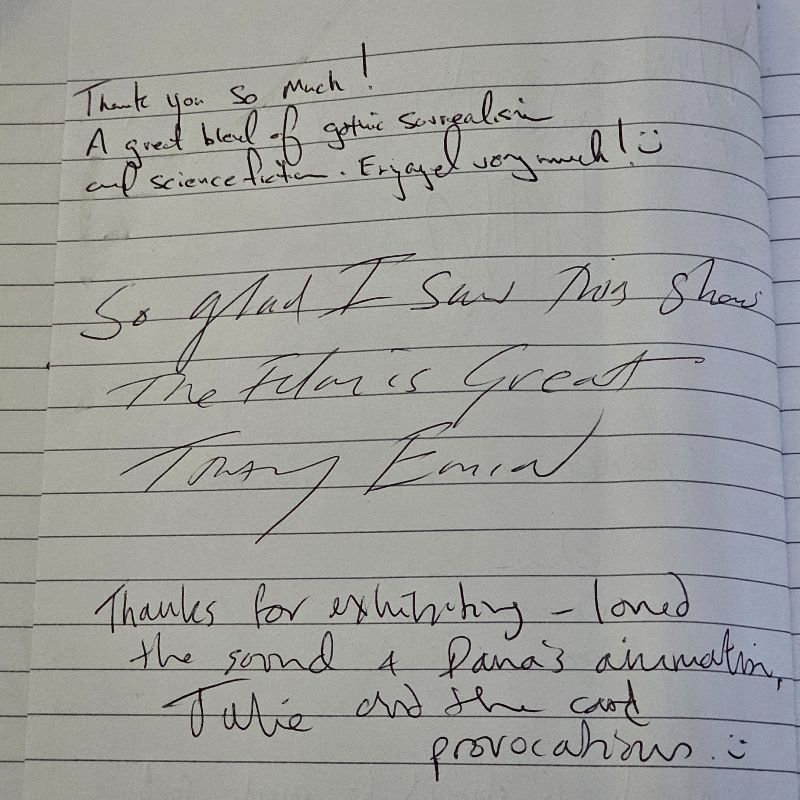 Thank you so much!
A great blend of gothic surrealism
and science fiction. Enjoyed very much! :)
So glad I saw this show
The Film is Great
Tracey Emin
Thanks for exhibiting – loved
the sound & Dana's animation,
Julie and the card
provocations. :)